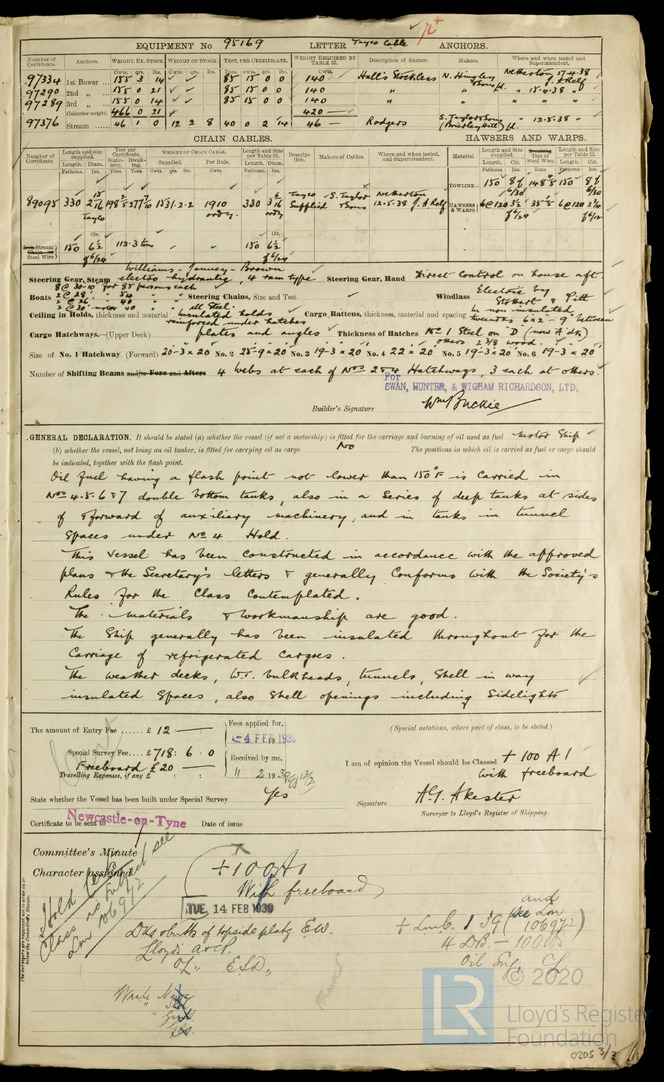 EQUIPMENT No 95169 LETTER Tayco Cable ANCHORS.
Number of Certificate. Anchors. WEIGHT, EX. STOCK. WEIGHT OF STOCK. TEST, PER CERTIFICATE. WEIGHT REQUIRED BY TABLE 53. Description of Anchor. Makers. Where and when tested and Superintendent.
Cwts. qrs. lbs. Cwts. qrs. lbs. Tons. cwts. qrs. lbs. Cwts.
97334 1st Bower 155 3 14 85 15 0 0 140 Hall's Stockless N. Hingley & Sons Ld Netherton 27.4.38 J. A. Relf
97290 2nd " 155 0 21 85 15 0 0 140 " " " 15.4.38 "
97289 3rd " 155 0 14 85 15 0 0 140 " " "
Collective weight. 466 0 21 420
97376 Stream 46 1 0 12 2 8 40 0 2 14 46 Rodgers S. Taylor & Sons (Brierley Hill) Ld " 12.5.38 "
CHAIN CABLES. HAWSERS AND WARPS.
Number of Certificate. Length and size supplied. Test per Certificate. WEIGHT OF CHAIN CABLE. Length and Size per Table 53. Description. Makers of Cables. Where and when tested, and Superintendent. Material Length and size supplied. Test of Steel Wire. Length and Size per Table 53.
Length. Diam. Statutory. Breaking. Supplied. Per Rule. Length. Diam.
89095 330 2 15/16 Tayco 198 277 1511.2.2 1910 ordy. 330 3 3/16 ordy Tayco Supplied S. Taylor & Sons Netherton 12.5.38 J. A. Relf
TOWLINE 150 8 1/2 6/30 148 150 8 1/2
HAWSERS & WARPS 6 @ 120 6/24 35 6 @ 120 6/12
Iron Stream Chain or Steel Wire 150 6 1/2 6/24 112.3 ton 150 6 1/2 6/24
Steering Gear, Steam Williams - Janney - Brown electro hydraulic, 4 ram type Steering Gear, Hand Direct Control on house aft
Boats 8 @ 30-10 for 85 persons each
2 @ 28 " 54
2 @ 26 " 40
2 @ 30 motor 40
Steering Chains, Size and Test Windlass Electric by Stothert & Pitt
Ceiling in Holds, thickness and material all Steel. insulated holds reinforced under hatches Cargo Battens, thickness, material and spacing In non insulated tweendks 6 x 2 - 9 between
Cargo Hatchways.—(Upper Deck) plates and angles Thickness of Hatches No 1 Steel on "D" (now A dk) others 2 3/8 wood.
Size of No. 1 Hatchway (Forward) 20-3 x 20 No. 2 25-9 x 20 No. 3 19-3 x 20 No. 4 22 x 20 No. 5 19-3 x 20 No. 6 19-3 x 20
Number of Shifting Beams and/or Fore and Afters 4 Webs at each of Nos 2 & 4 Hatchways, 3 each at others.
FOR
SWAN, HUNTER, & WIGHAM RICHARDSON, LTD.
Wm Buckie
Builder's Signature
GENERAL DECLARATION. It should be stated (a) whether the vessel (if not a motorship) is fitted for the carriage and burning of oil used as fuel Motor Ship
(b) whether the vessel, not being an oil tanker, is fitted for carrying oil as cargo No The positions in which oil is carried as fuel or cargo should
be indicated, together with the flash point.
Oil fuel having a flash point not lower than 150°F is carried in
Nos 4.5.6 & 7 double bottom tanks, also in a Series of deep tanks at sides
of & forward of auxiliary machinery, and in tanks in tunnel
Spaces under No 4 Hold.
This Vessel has been constructed in accordance with the approved
plans & the Secretary's letters & generally Conforms with the Society's
Rules for the Class Contemplated.
The materials & workmanship are good.
The Ship generally has been insulated throughout for the
Carriage of refrigerated Cargoes.
The weather decks, W.T. bulkheads, tunnels, Shell in way
insulated Spaces, also Shell openings including Sidelights
The amount of Entry Fee £ 12
Special Survey Fee £ 718 : 6 : 0
Freeboard £20
Travelling Expenses, if any £
Fees applied for,
-4 FEB 1939
Received by me,
11 2 1939
(Special notations, where part of class, to be stated.)
I am of opinion the Vessel should be Classed + 100 A1
with freeboard
State whether the Vessel has been built under Special Survey Yes
Signature A. J. Akester
Surveyor to Lloyd's Register of Shipping.
Certificate to be sent to Newcastle-on-Tyne Date of issue
Committee's Minute
Character assigned
+100A1
With freeboard
TUE. 14 FEB 1939
Hold Cert
Class no
see
Lon 106972
Dks & butts of topside platg E.W.
Lloyds A & CP
+ LMC 1 39 (and see Lon 106972)
4 DB - 100 lb
Oil Eng. CL
Write
© 2020
LR
Lloyd's Register
Foundation
0205 3/3